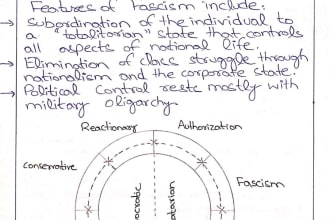 Features of Fascism include:
→ Subordination of the individual to
a "totalitarian" state that controls
all aspects of national life.
→ Elimination of class struggle through
nationalism and the corporate state.
→ Political Control rests mostly with
military oligarchy.
Reactionary Authorization
Conservative
Fascism